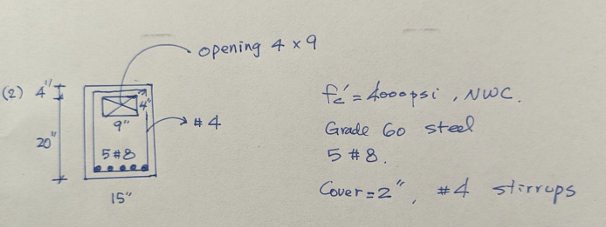 opening 4 x 9
(2) 4"
4"
9"
#4
20"
5#8
15"
fc' = 4000psi , NWC.
Grade 60 steel
5 #8.
Cover = 2", #4 stirrups